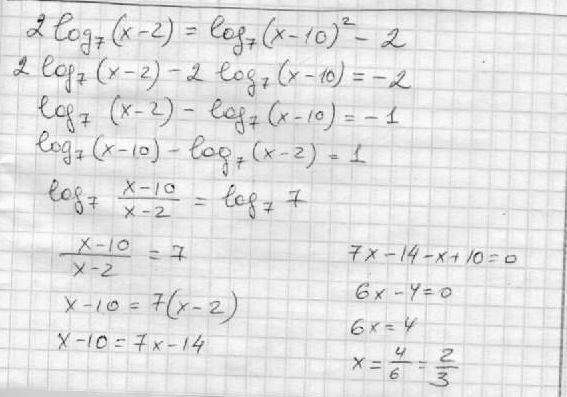 2 log₇(x-2) = log₇(x-10)² - 2
2 log₇(x-2) - 2 log₇(x-10) = -2
log₇ (x-2) - log₇(x-10) = -1
log₇(x-10) - log₇(x-2) = 1
log₇ (x-10)/(x-2) = log₇ 7
(x-10)/(x-2) = 7
x-10 = 7(x-2)
x-10 = 7x-14
7x-14-x+10=0
6x-4=0
6x=4
x = 4/6 = 2/3